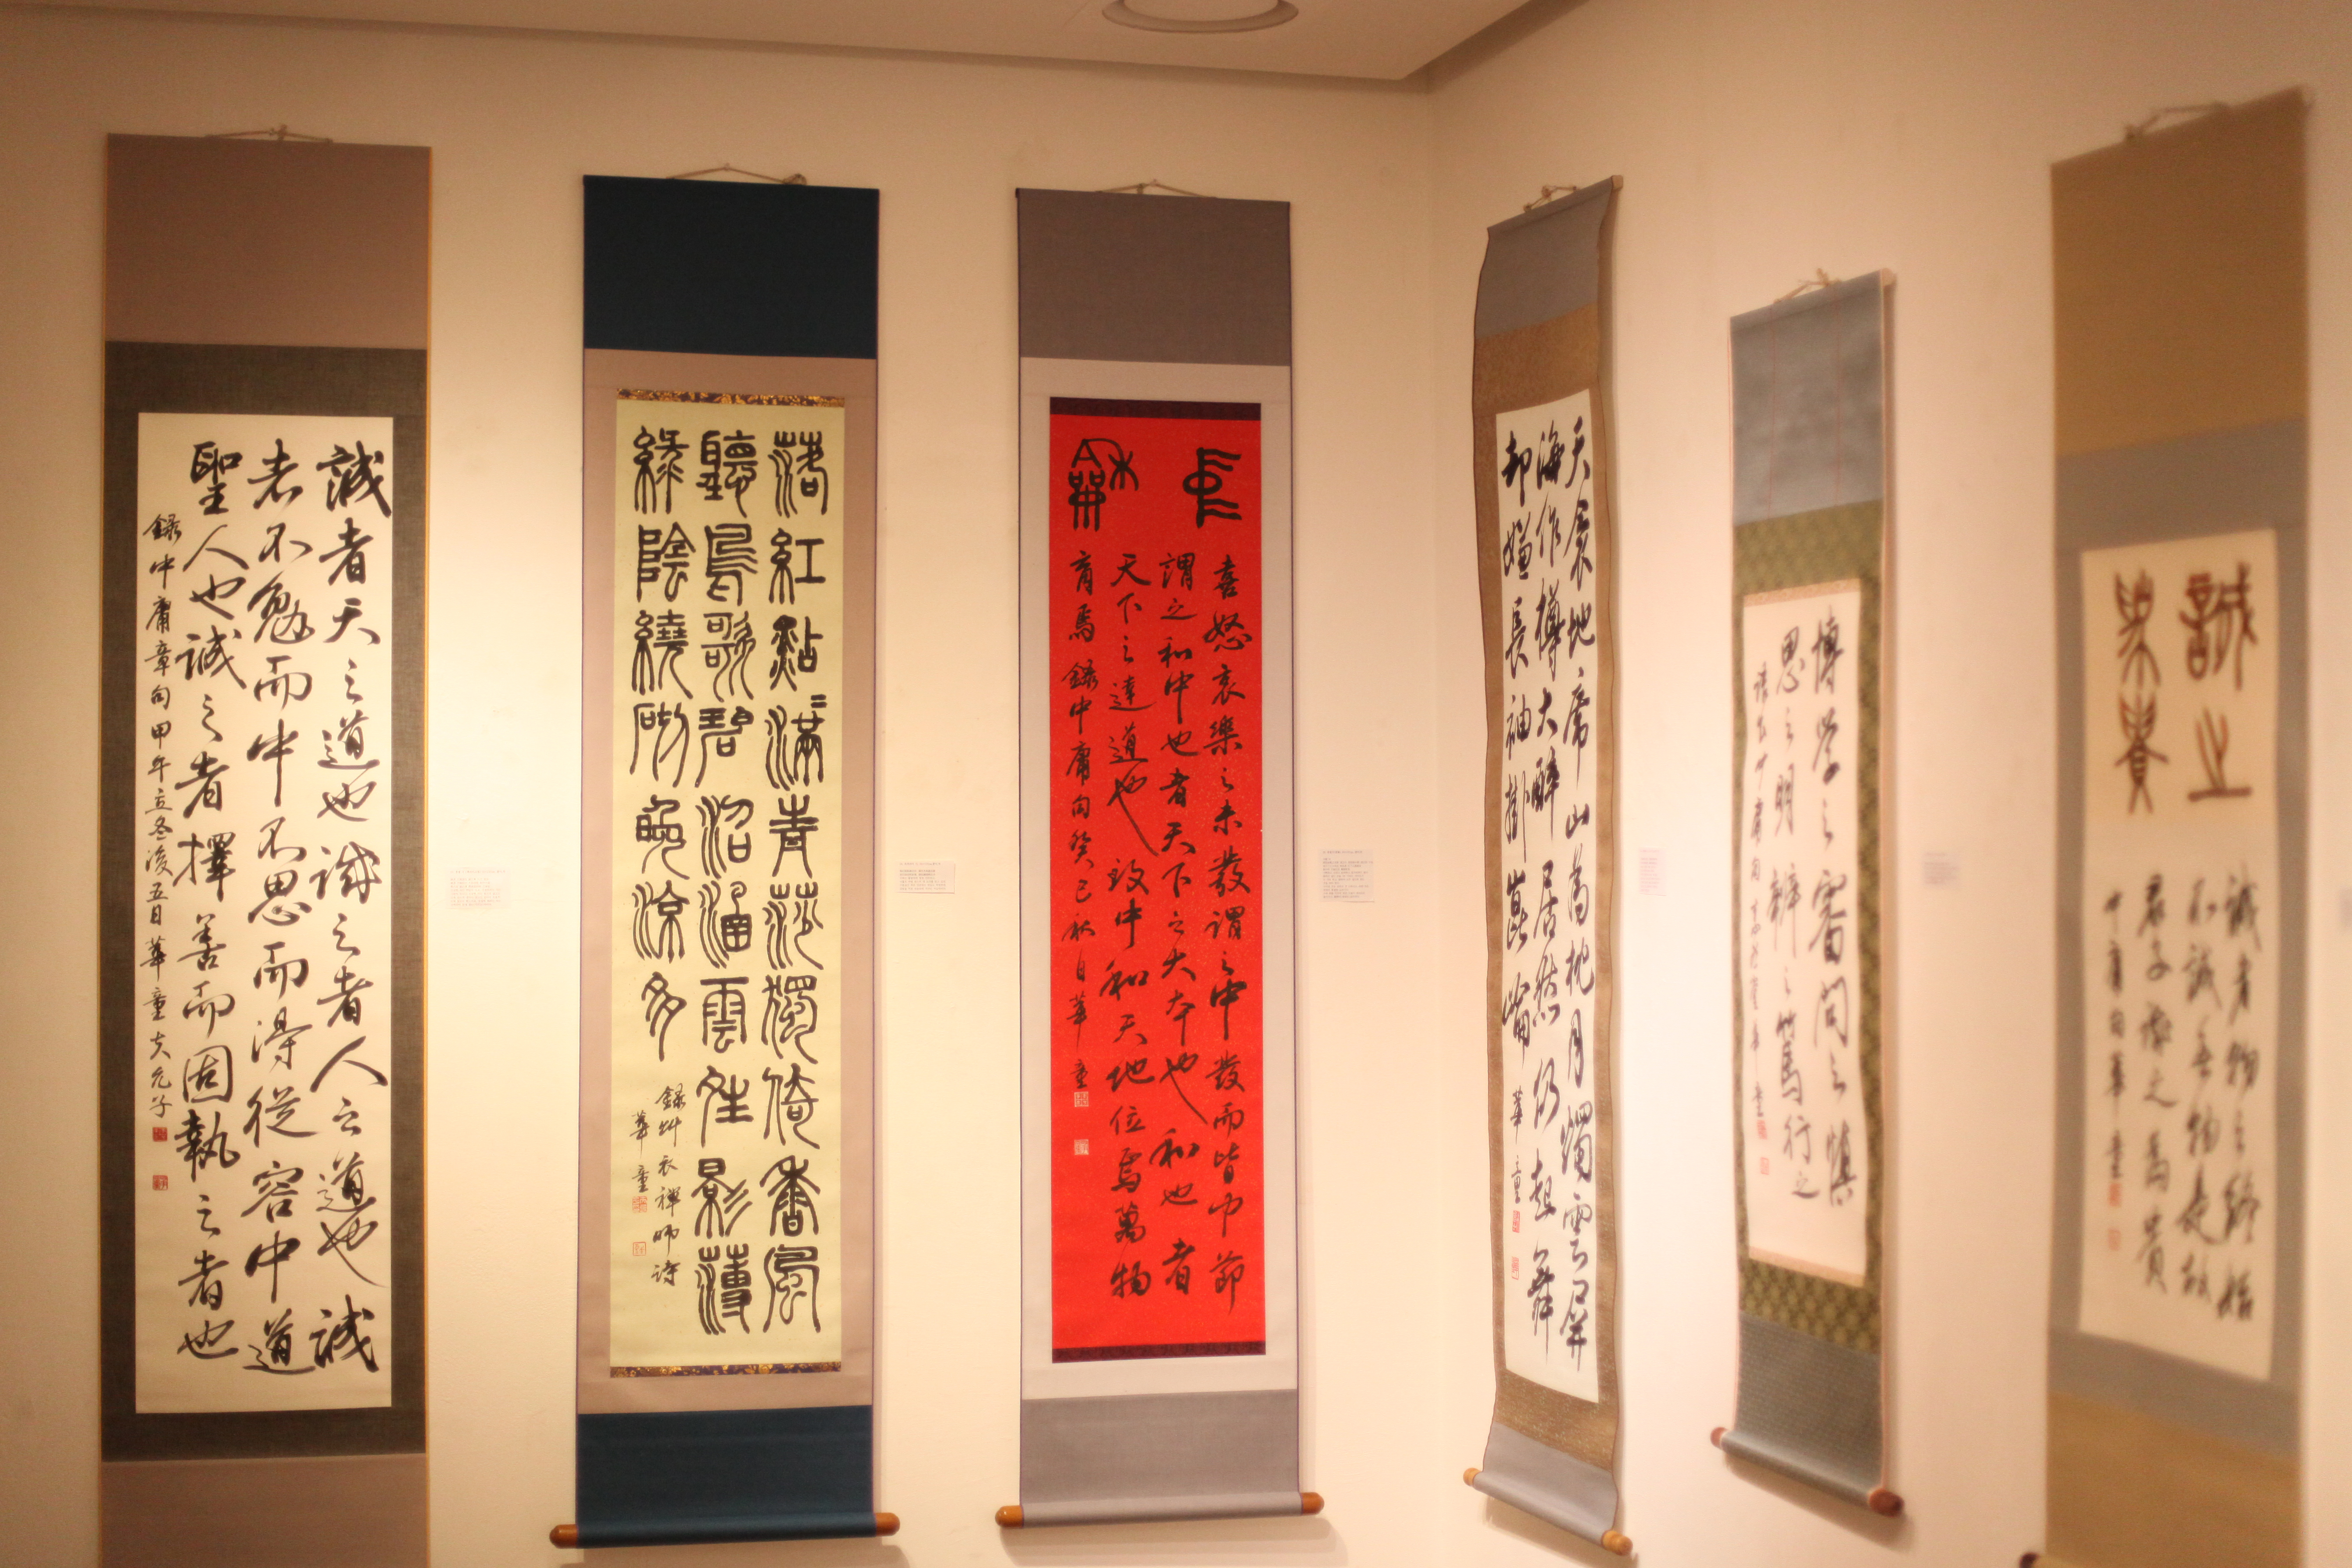 誠者天之道也誠之者人之道也誠
者不勉而中不思而得從容中道
聖人也誠之者擇善而固執之者也
錄中庸章句甲午立冬後五日華童
落紅點〻滿青莎獨倚香風
聽鳥歌碧沼涵雲生影薄
綠陰繞砌晚涼多
錄艸衣禪師詩
華童
中龢
喜怒哀樂之未發謂之中發而皆中節
謂之和中也者天下之大本也和也者
天下之達道也致中和天地位焉萬物
育焉 錄中庸句癸巳秋日華童
天衾地席山為枕月燭雲屏
海作樽大醉居然仍起舞
却嫌長袖掛崑崙 華童
博學之審問之慎
思之明辨之篤行之
中庸句
誠之
為貴
誠者物之終始
不誠無物是故
君子誠之為貴
中庸句華童